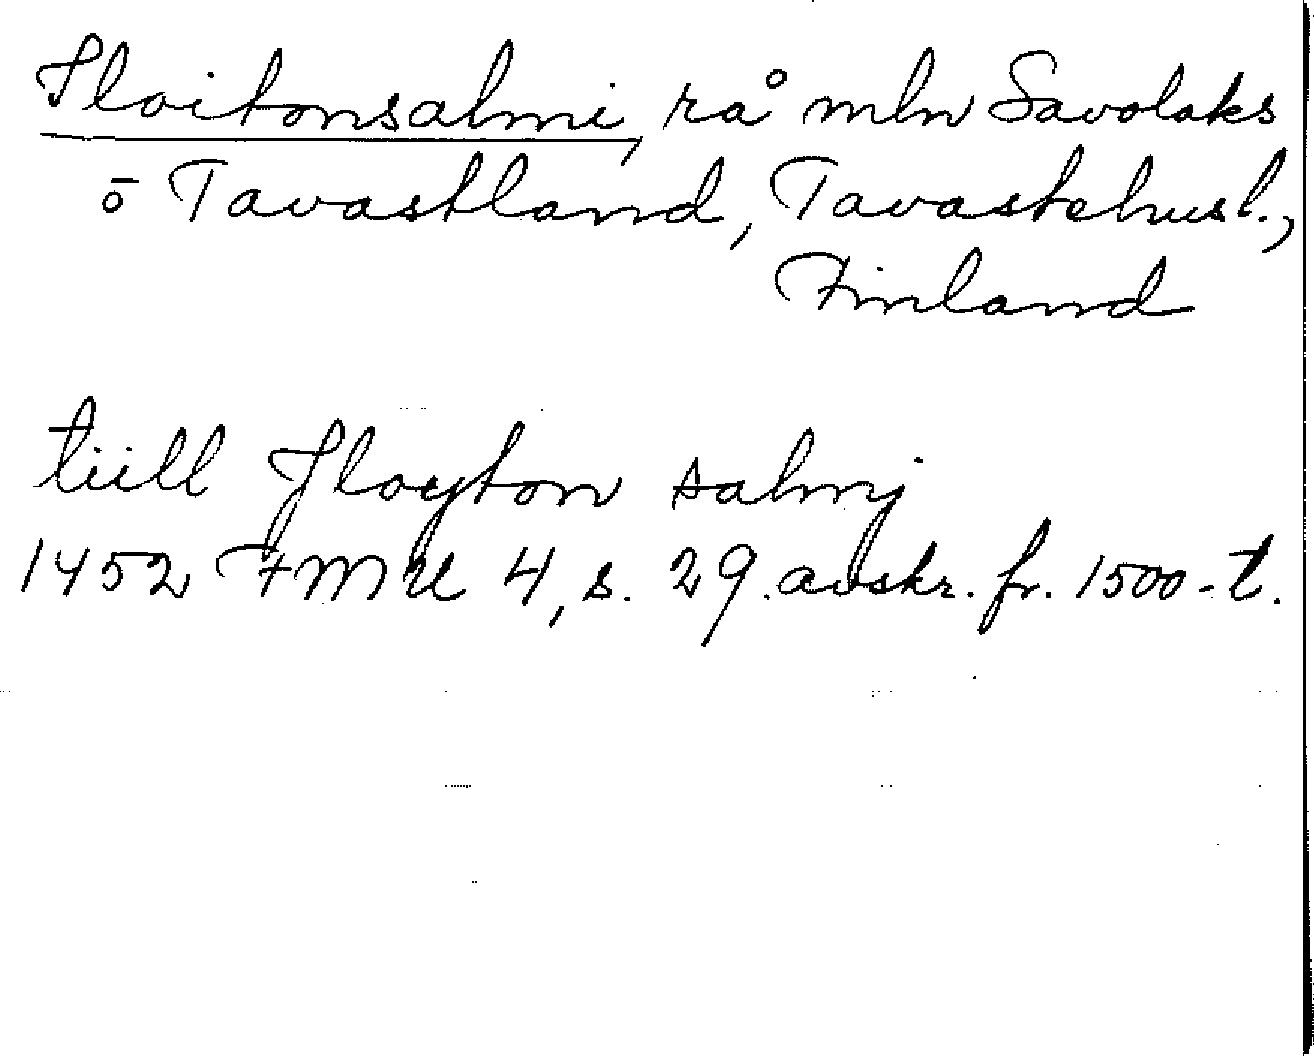 Floitonsalmi, rå mln Savolaks
ō Tavastland, Tavastehusl.,
Finland
tiill Floyton salmj
1452 FMU 4, s. 29. avskr. fr. 1500-t.